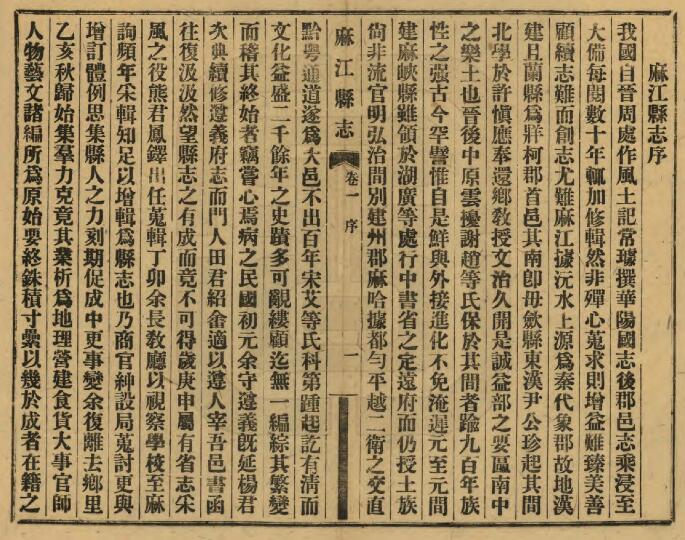 麻江縣志序
我國自晉周處作風土記常璩撰華陽國志後郡邑志乘浸至
大備每閱數十年輒加修輯然非殫心蒐求則增益難臻美善
顧續志難而創志尤難麻江據沅水上源爲秦代象郡故地漢
建且蘭縣爲牂柯郡首邑其南卽毋斂縣東漢尹公珍起其間
北學於許愼應奉還鄉教授文治久開是誠益部之要區南中
之樂土也晉後中原雲擾謝趙等氏保於其間者踰九百年族
性之强古今罕譬惟自是鮮與外接進化不免淹遲元至元間
建麻峽縣雖領於湖廣等處行中書省之定遠府而仍授土族
尙非流官明弘治間別建州郡麻哈據都勻平越二衛之交直
麻江縣志
卷一 序
一
黔粵通道遂爲大邑不出百年宋艾等氏科第踵起訖有淸而
文化益盛二千餘年之史蹟多可覼縷顧迄無一編綜其繁變
而稽其終始者竊嘗心焉病之民國初元余守遵義旣延楊君
次典續修遵義府志而門人田君紹畬適以遵人宰吾邑書函
往復汲汲然望縣志之有成而竟不可得歲庚申屬有省志采
風之役熊君鳳鐸出任蒐輯丁卯余長敎廳以視察學校至麻
詢頻年采輯知足以增輯爲縣志也乃商官紳設局蒐討更與
增訂體例思集縣人之力刻期促成中更事變余復離去鄉里
乙亥秋歸始集羣力克竟其業析爲地理營建食貨大事官師
人物藝文諸編所爲原始要終銖積寸纍以幾於成者在籍之